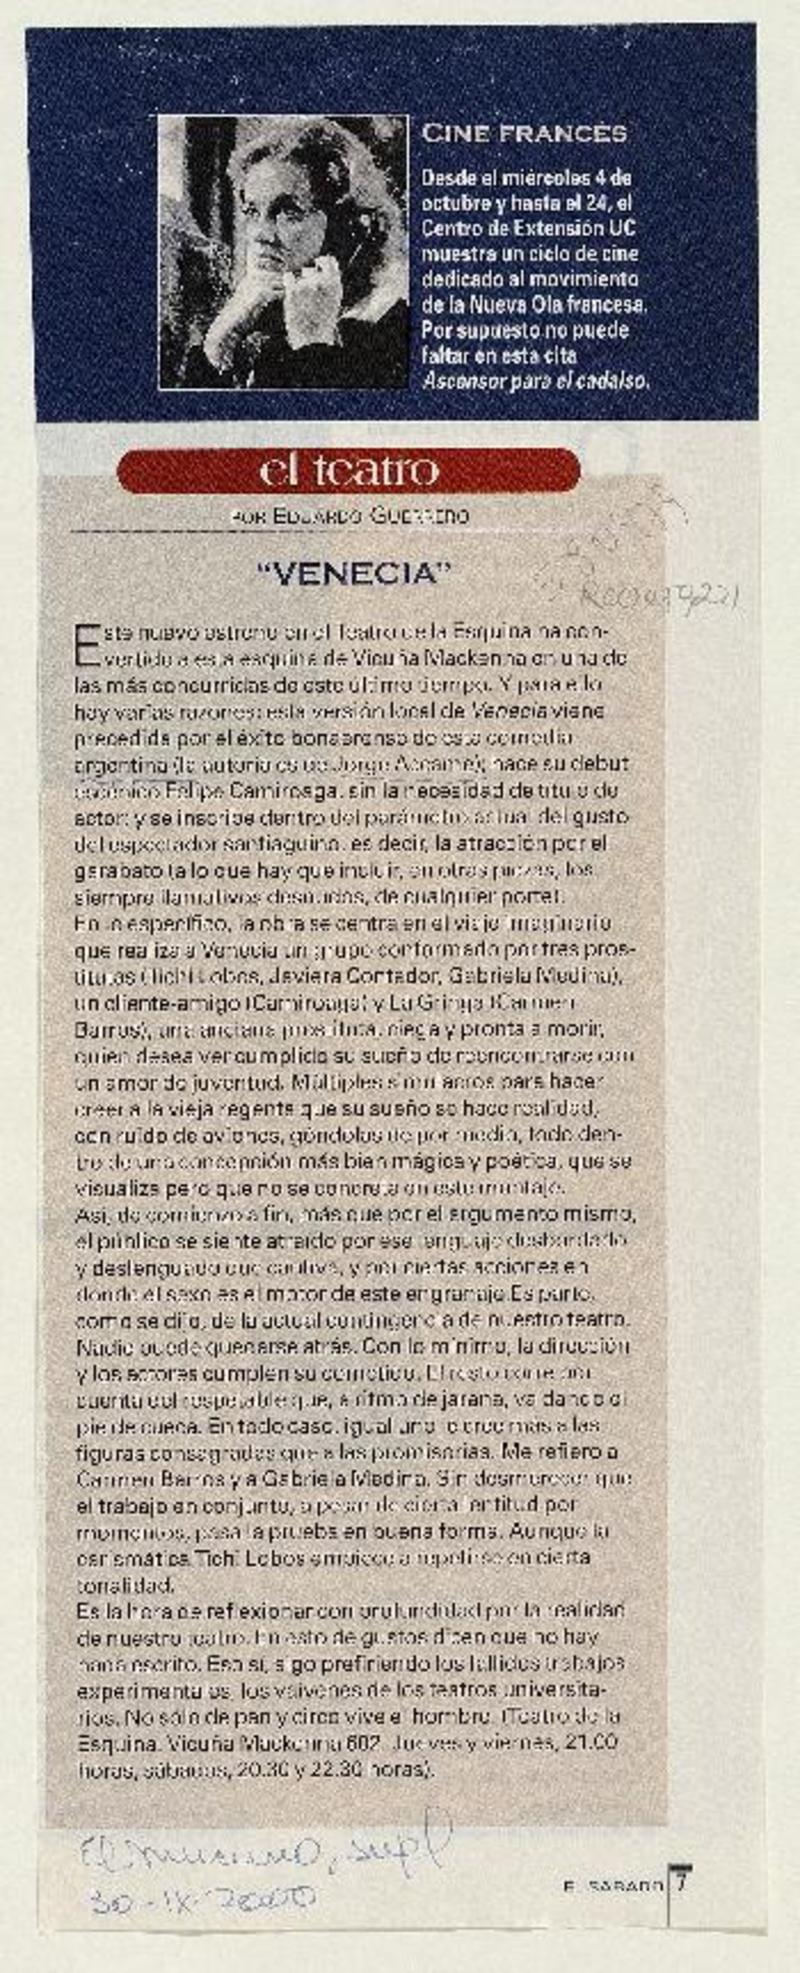 CINE FRANCÉS
Desde el miércoles 4 de
octubre y hasta el 24, el
Centro de Extensión UC
muestra un ciclo de cine
dedicado al movimiento
de la Nueva Ola francesa.
Por supuesto no puede
faltar en esta cita
Ascensor para el cadalso.
el teatro
POR EDUARDO GUERRERO
"VENECIA"
Este nuevo estreno en el Teatro de la Esquina ha con-
vertido a esta esquina de Vicuña Mackenna en una de
las más concurridas de este último tiempo. Y para ello
hay varias razones: esta versión local de Venecia viene
precedida por el éxito bonaerense de esta comedia
argentina (la autoría es de Jorge Accame); hace su debut
escénico Felipe Camiroaga, sin la necesidad de título de
actor; y se inscribe dentro del parámetro actual del gusto
del espectador santiaguino, es decir, la atracción por el
garabato (a lo que hay que incluir, en otras piezas, los
siempre llamativos desnudos, de cualquier porte).
En lo específico, la obra se centra en el viaje imaginario
que realiza a Venecia un grupo conformado por tres pros-
titutas (Tichi Lobos, Javiera Contador, Gabriela Medina),
un cliente-amigo (Camiroaga) y La Gringa (Carmen
Barros), una anciana prostituta, ciega y pronta a morir,
quien desea ver cumplido su sueño de reencontrarse con
un amor de juventud. Múltiples simulacros para hacer
creer a la vieja regenta que su sueño se hace realidad,
con ruido de aviones, góndolas de por medio, todo den-
tro de una concepción más bien mágica y poética, que se
visualiza pero que no se concreta en este montaje.
Así, de comienzo a fin, más que por el argumento mismo,
el público se siente atraído por ese lenguaje desbordado
y deslenguado que cautiva, y por ciertas acciones en
donde el sexo es el motor de este engranaje. Es parte,
como se dijo, de la actual contingencia de nuestro teatro.
Nadie puede quedarse atrás. Con lo mínimo, la dirección
y los actores cumplen su cometido. El resto corre por
cuenta del respetable que, a ritmo de jarana, va dando el
pie de cueca. En todo caso, igual uno le cree más a las
figuras consagradas que a las promisorias. Me refiero a
Carmen Barros y a Gabriela Medina. Sin desmerecer que
el trabajo en conjunto, a pesar de cierta lentitud por
momentos, pasa la prueba en buena forma. Aunque la
carismática Tichi Lobos empiece a repetirse en cierta
tonalidad.
Es la hora de reflexionar con profundidad por la realidad
de nuestro teatro. En esto de gustos dicen que no hay
nada escrito. Eso sí, sigo prefiriendo los fallidos trabajos
experimentales, los vaivenes de los teatros universita-
rios. No sólo de pan y circo vive el hombre. (Teatro de la
Esquina. Vicuña Mackenna 602. Jueves y viernes, 21.00
horas, sábados, 20.30 y 22.30 horas).
El Mercurio, supl
30-IX-2000
EL SABADO 7